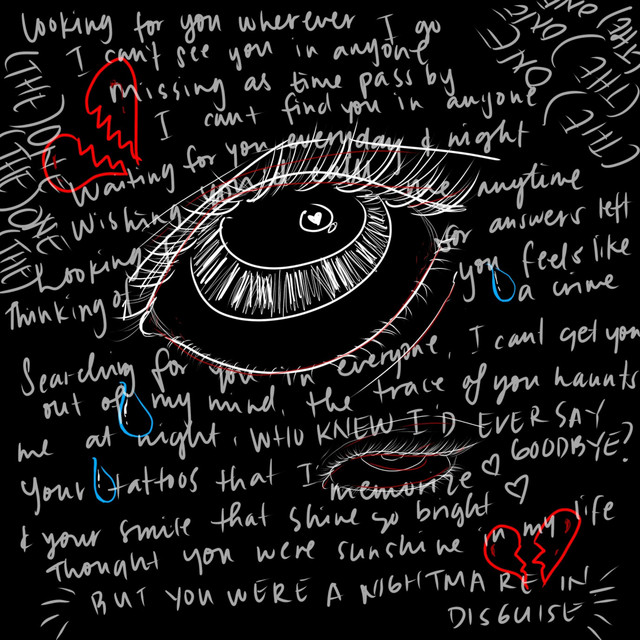 Looking for you wherever I go
I can't see you in anyone
missing as time pass by
I cant find you in anyone
Waiting for you everyday & night
Wishing you'd call me anytime
Looking for answers left
Thinking of you feels like
a crime
Searching for you in everyone, I cant get you
out of my mind, the trace of you haunts
me at night, WHO KNEW I'D EVER SAY
GOODBYE?
Your tattoos that I memorize
& your smile that shine so bright in my life
Thought you were sunshine
BUT YOU WERE A NIGHTMARE IN
DISGUISE
(THE) ONE
(THE) ONE
(THE)
(THE) ONE
(THE) ONE
(THE) ONE